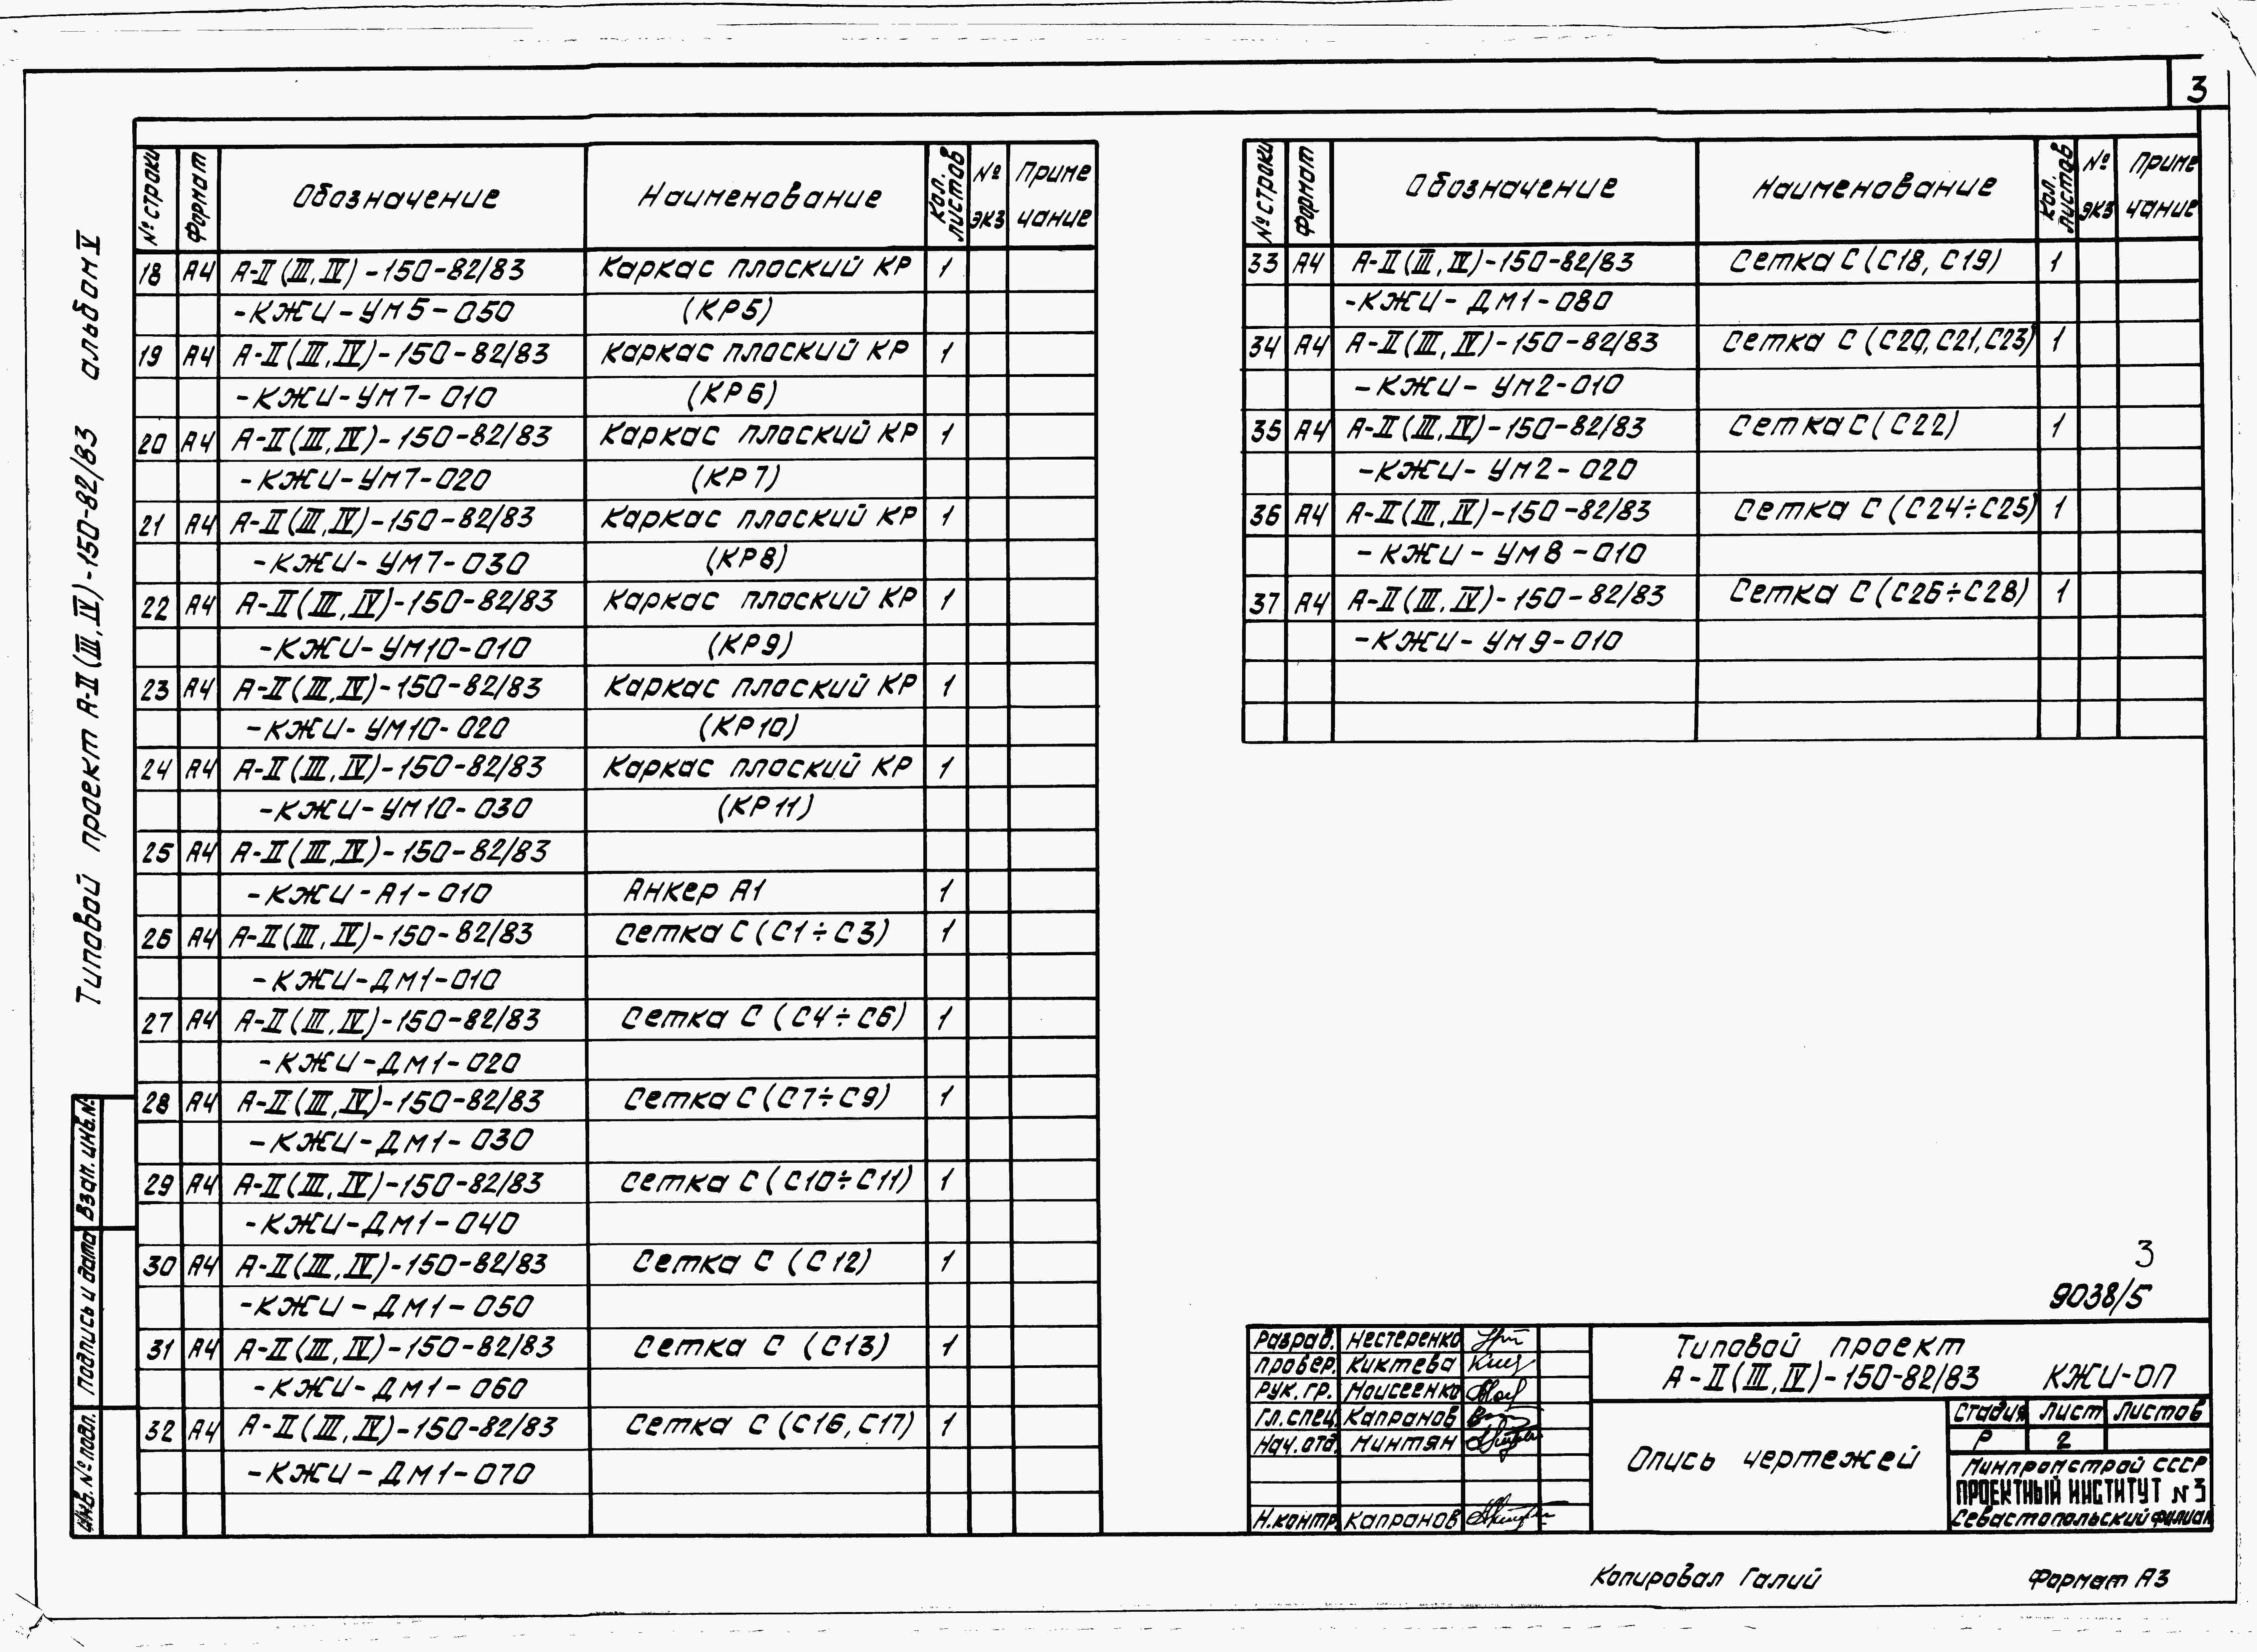 3
Типовой проект А-II (III, IV)-150-82/83 альбом V
№ строки Формат Обозначение Наименование Кол. листов № экз Приме чание
18 А4 А-II (III, IV) -150-82/83 Каркас плоский КР 1
-КЖИ-УМ5-050 (КР5)
19 А4 А-II (III, IV)-150-82/83 Каркас плоский КР 1
-КЖИ-УМ7-010 (КР6)
20 А4 А-II (III, IV)-150-82/83 Каркас плоский КР 1
-КЖИ-УМ7-020 (КР7)
21 А4 А-II (III, IV)-150-82/83 Каркас плоский КР 1
-КЖИ-УМ7-030 (КР8)
22 А4 А-II (III, IV)-150-82/83 Каркас плоский КР 1
-КЖИ-УМ10-010 (КР9)
23 А4 А-II (III, IV)-150-82/83 Каркас плоский КР 1
-КЖИ-УМ10-020 (КР10)
24 А4 А-II (III, IV)-150-82/83 Каркас плоский КР 1
-КЖИ-УМ10-030 (КР11)
25 А4 А-II (III, IV)-150-82/83
-КЖИ-А1-010 Анкер А1 1
26 А4 А-II (III, IV)-150-82/83 Сетка С (С1÷С3) 1
-КЖИ-ДМ1-010
27 А4 А-II (III, IV)-150-82/83 Сетка С (С4÷С6) 1
-КЖИ-ДМ1-020
28 А4 А-II (III, IV)-150-82/83 Сетка С (С7÷С9) 1
-КЖИ-ДМ1-030
29 А4 А-II (III, IV)-150-82/83 Сетка С (С10÷С11) 1
-КЖИ-ДМ1-040
30 А4 А-II (III, IV)-150-82/83 Сетка С (С12) 1
-КЖИ-ДМ1-050
31 А4 А-II (III, IV)-150-82/83 Сетка С (С13) 1
-КЖИ-ДМ1-060
32 А4 А-II (III, IV)-150-82/83 Сетка С (С16, С17) 1
-КЖИ-ДМ1-070
№ строки Формат Обозначение Наименование Кол. листов № экз Приме чание
33 А4 А-II (III, IV)-150-82/83 Сетка С (С18, С19) 1
-КЖИ-ДМ1-080
34 А4 А-II (III, IV)-150-82/83 Сетка С (С20, С21, С23) 1
-КЖИ-УМ2-010
35 А4 А-II (III, IV)-150-82/83 Сетка С (С22) 1
-КЖИ-УМ2-020
36 А4 А-II (III, IV)-150-82/83 Сетка С (С24÷С25) 1
-КЖИ-УМ8-010
37 А4 А-II (III, IV)-150-82/83 Сетка С (С26÷С28) 1
-КЖИ-УМ9-010
Взам. инв.№
Подпись и дата
Инв. № подл.
3
9038/5
Разраб. Нестеренко
Провер. Киктева
Рук. гр. Моисеенко
Гл. спец. Капранов
Нач. отд. Минтян
Н. контр. Капранов
Типовой проект
А-II (III, IV)-150-82/83 КЖИ-ОП
Опись чертежей
Стадия Лист Листов
Р 2
Минпромстрой СССР
ПРОЕКТНЫЙ ИНСТИТУТ №3
Севастопольский филиал
Копировал Галий Формат А3